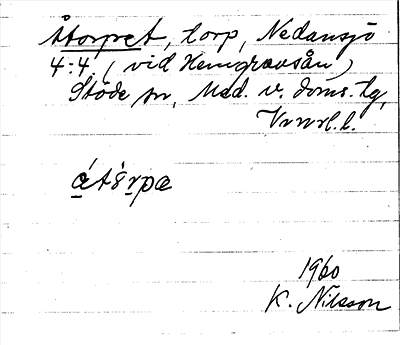 Åtorpret, torp, Nedansjö
4:4 (vid Hemgravsån)
Stöde sn, Med. v. doms. tg,
Vnrrl. l.
1960
K. Nilsson